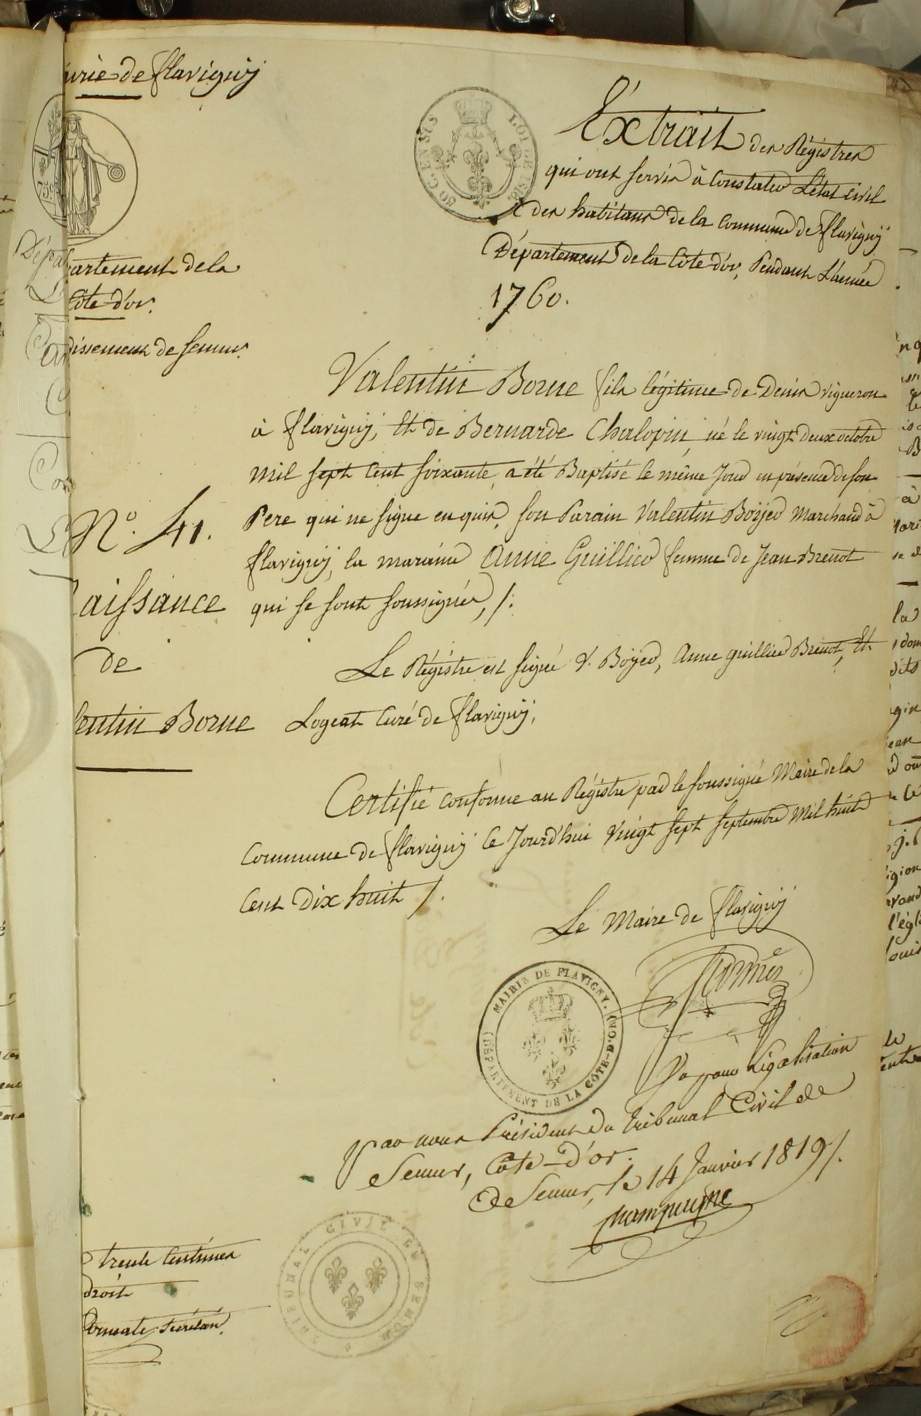 irie de flavigny
artement de la
Côte d'or.
dissement de Semur.
Nº. 41.
aissance
de
lentin Borne
Extrait des Régistres
qui ont servis à Constater L'état Civil
des habitans de la Commune de flavigny
Département de la Côte d'or, Pendant L'année
1760.
Valentin Borne fils légitime de Denis vigneron
à flavigny, Et de Bernarde Chalopin, né le vingt deux octobre
Mil sept Cent soixante, a été Baptisé le même Jour en présence de son
Pere qui ne signe enquis, son Parain Valentin Boÿer Marchand à
flavigny, la maraine Anne Guillier femme de Jean Brenot
qui se sont soussignés, /.
Le Régistre est signé V. Boÿer, Anne guillier Brenot, Et
Logeat Curé de flavigny,
Certifié conforme au Régistre par le soussigné Maire de la
Commune de flavigny Ce Jourd'hui Vingt sept Septembre Mil huit
Cent Dix huit /.
Le Maire de flavigny
MAIRIE DE FLAVIGNY, (DÉPARTEMENT DE LA CÔTE-D'OR)
Vu pour Légalisation
par nous Président du Tribunal Civil de
Semur, Côte-D'or.
de Semur, le 14 Janvier 1819 /.
TRIBUNAL CIVIL DE SEMUR
trente Centimes
droit